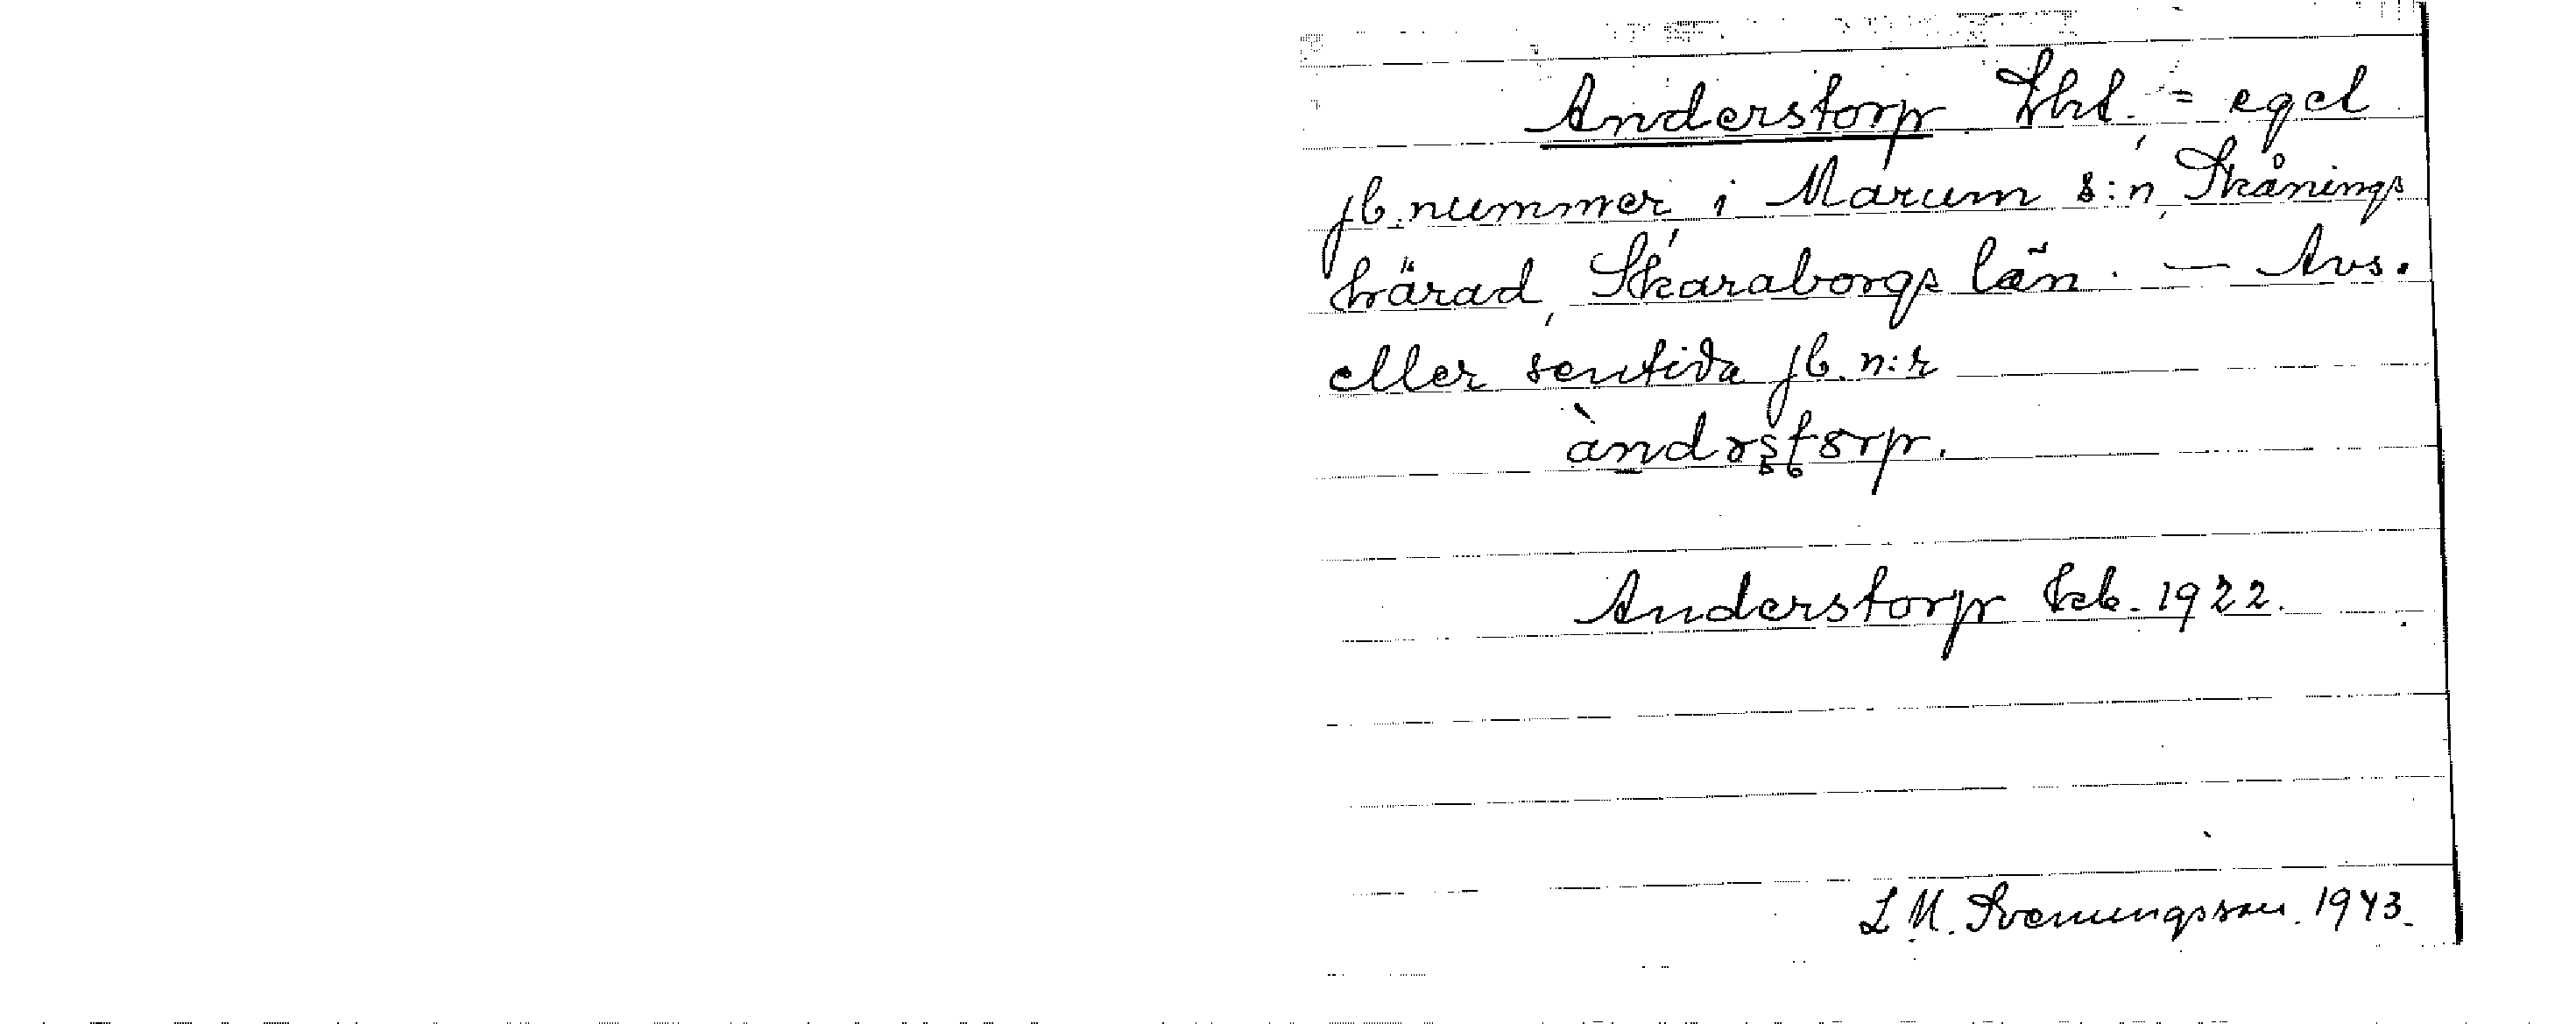 Anderstorp Lht, = eget
jb.nummer, i Marum s:n, Skånings
härad, Skaraborgs län. — Avs.
eller sentida jb. n:r
àndrstorp.
Anderstorp kb. 1922.
L M. Svenungsson. 1943.